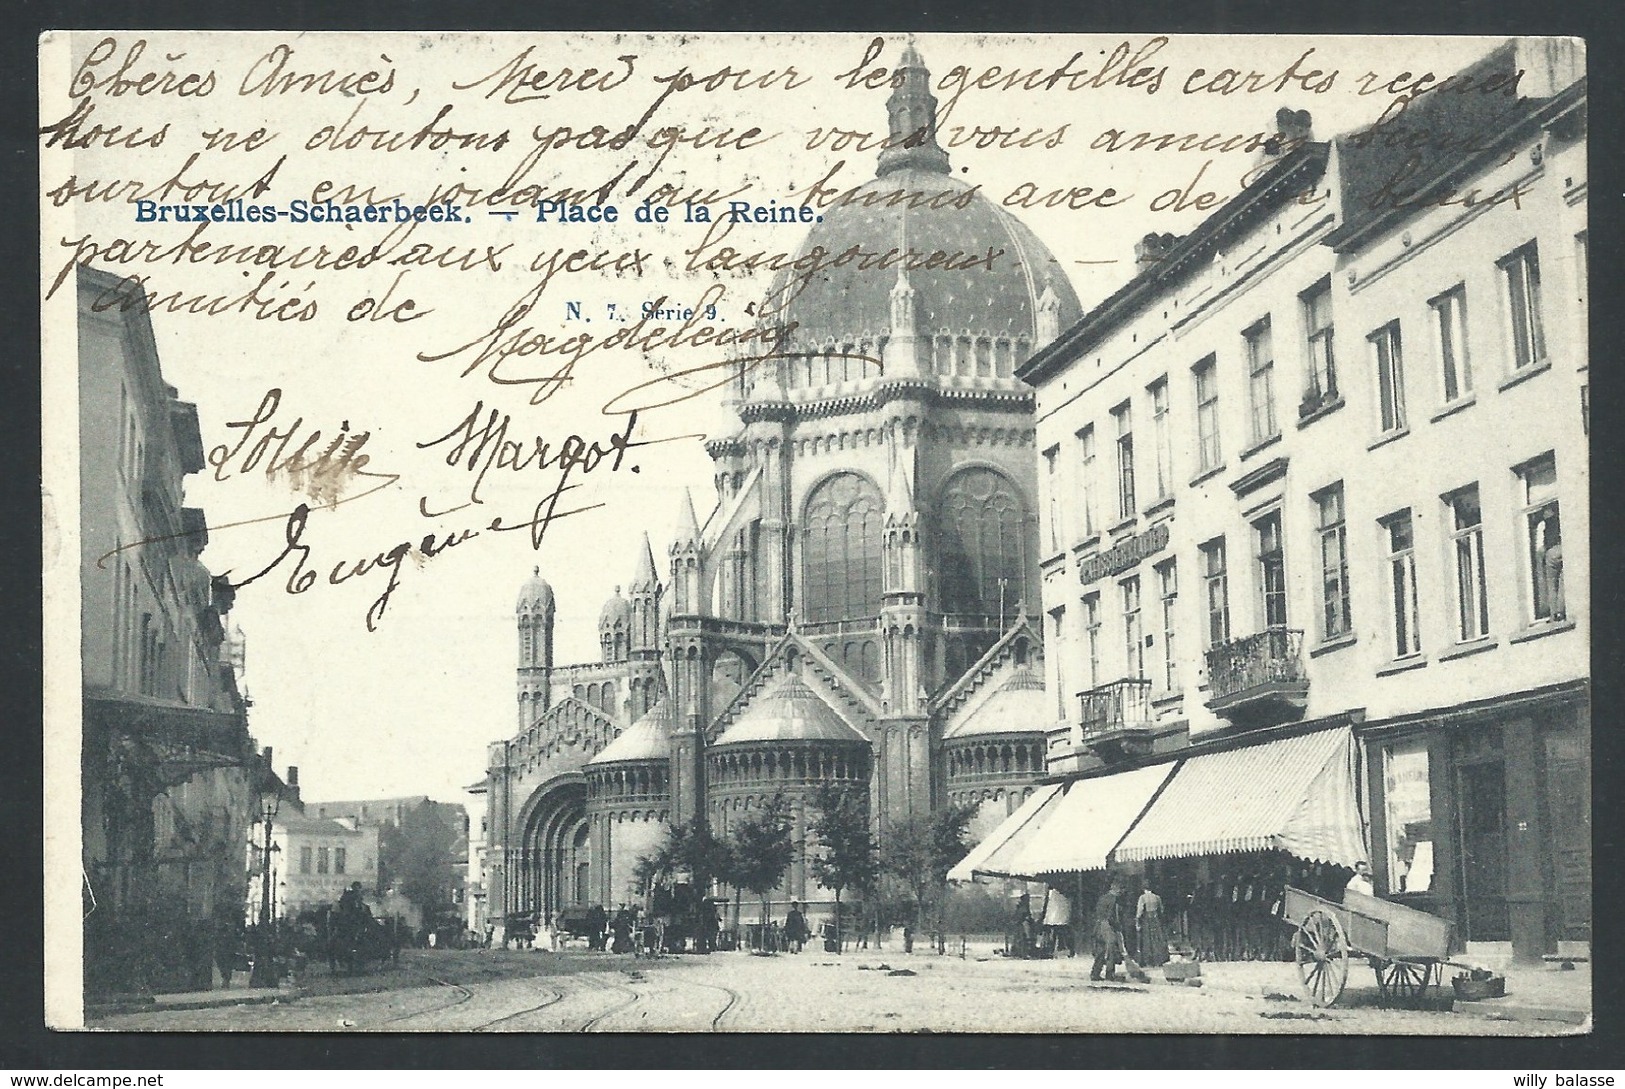 Chères Amies, Merci pour les gentilles cartes reçues,
Nous ne doutons pas que vous vous amusez bien,
surtout en jouant au tennis avec de beaux
Bruxelles-Schaerbeek. — Place de la Reine.
partenaires aux yeux langoureux
Amitiés de
N. 7. Série 9.
Magdeleine
Louise Margot.
Eugénie
willy balasse